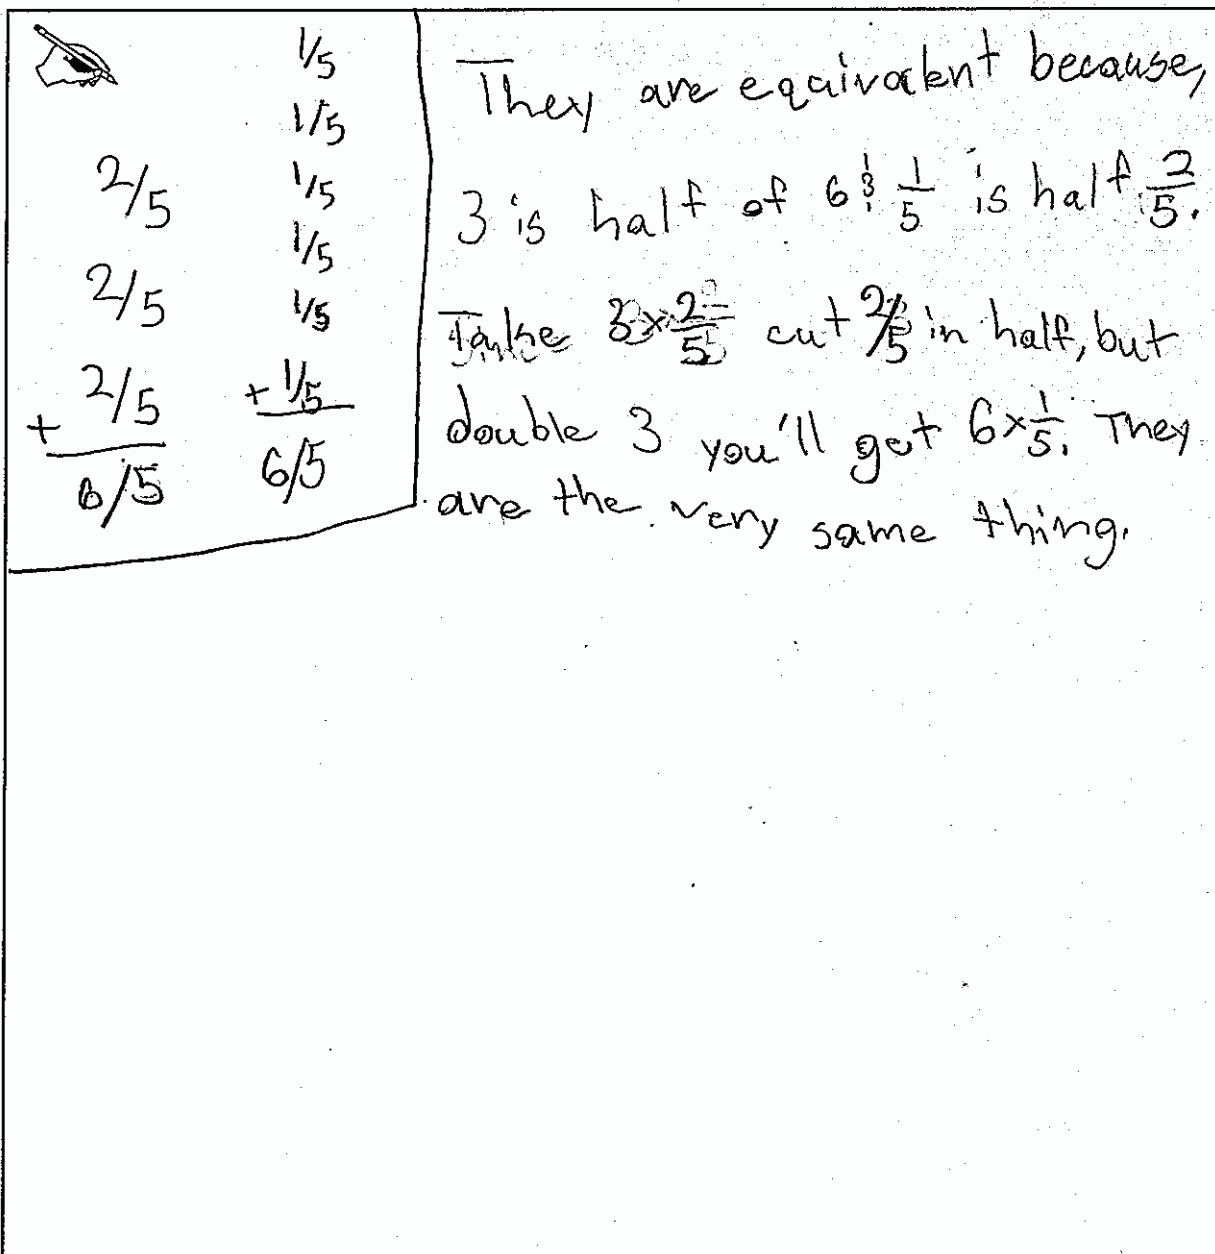 1/5
1/5
2/5 1/5
1/5
2/5 1/5
+ 2/5 + 1/5
6/5 6/5
They are equivalent because,
3 is half of 6 & 1/5 is half 2/5.
Take 3 x 2/5 cut 2/5 in half, but
double 3 you'll get 6 x 1/5. They
are the very same thing.